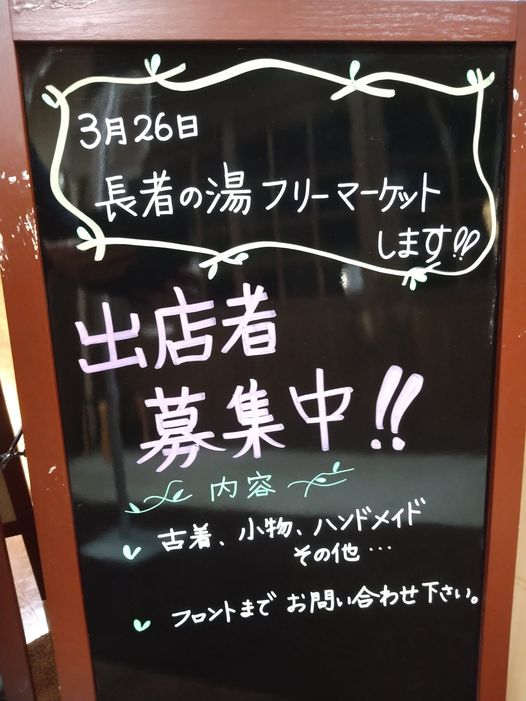 3月26日
長者の湯 フリーマーケット
します!!
出店者
募集中!!
内容
古着、小物、ハンドメイド
その他…
フロントまで お問い合わせ下さい。